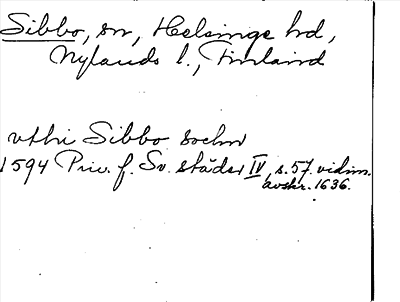 Sibbo, sn, Helsinge hd,
Nylands l., Finland
vthi Sibbo sochn
1594 Priv. f. Sv. städer IV, s. 57. vidim.
avskr. 1636.